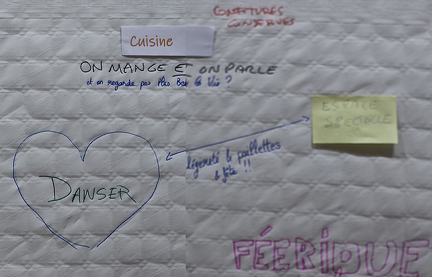 CONFITURES
CONSERVES
Cuisine
ON MANGE ET ON PARLE
et on regarde pas Plus Bel la Vie ?
ESPACE
SPECTACLE
légereté & paillettes
& fête !!
DANSER
FÉERIQUE